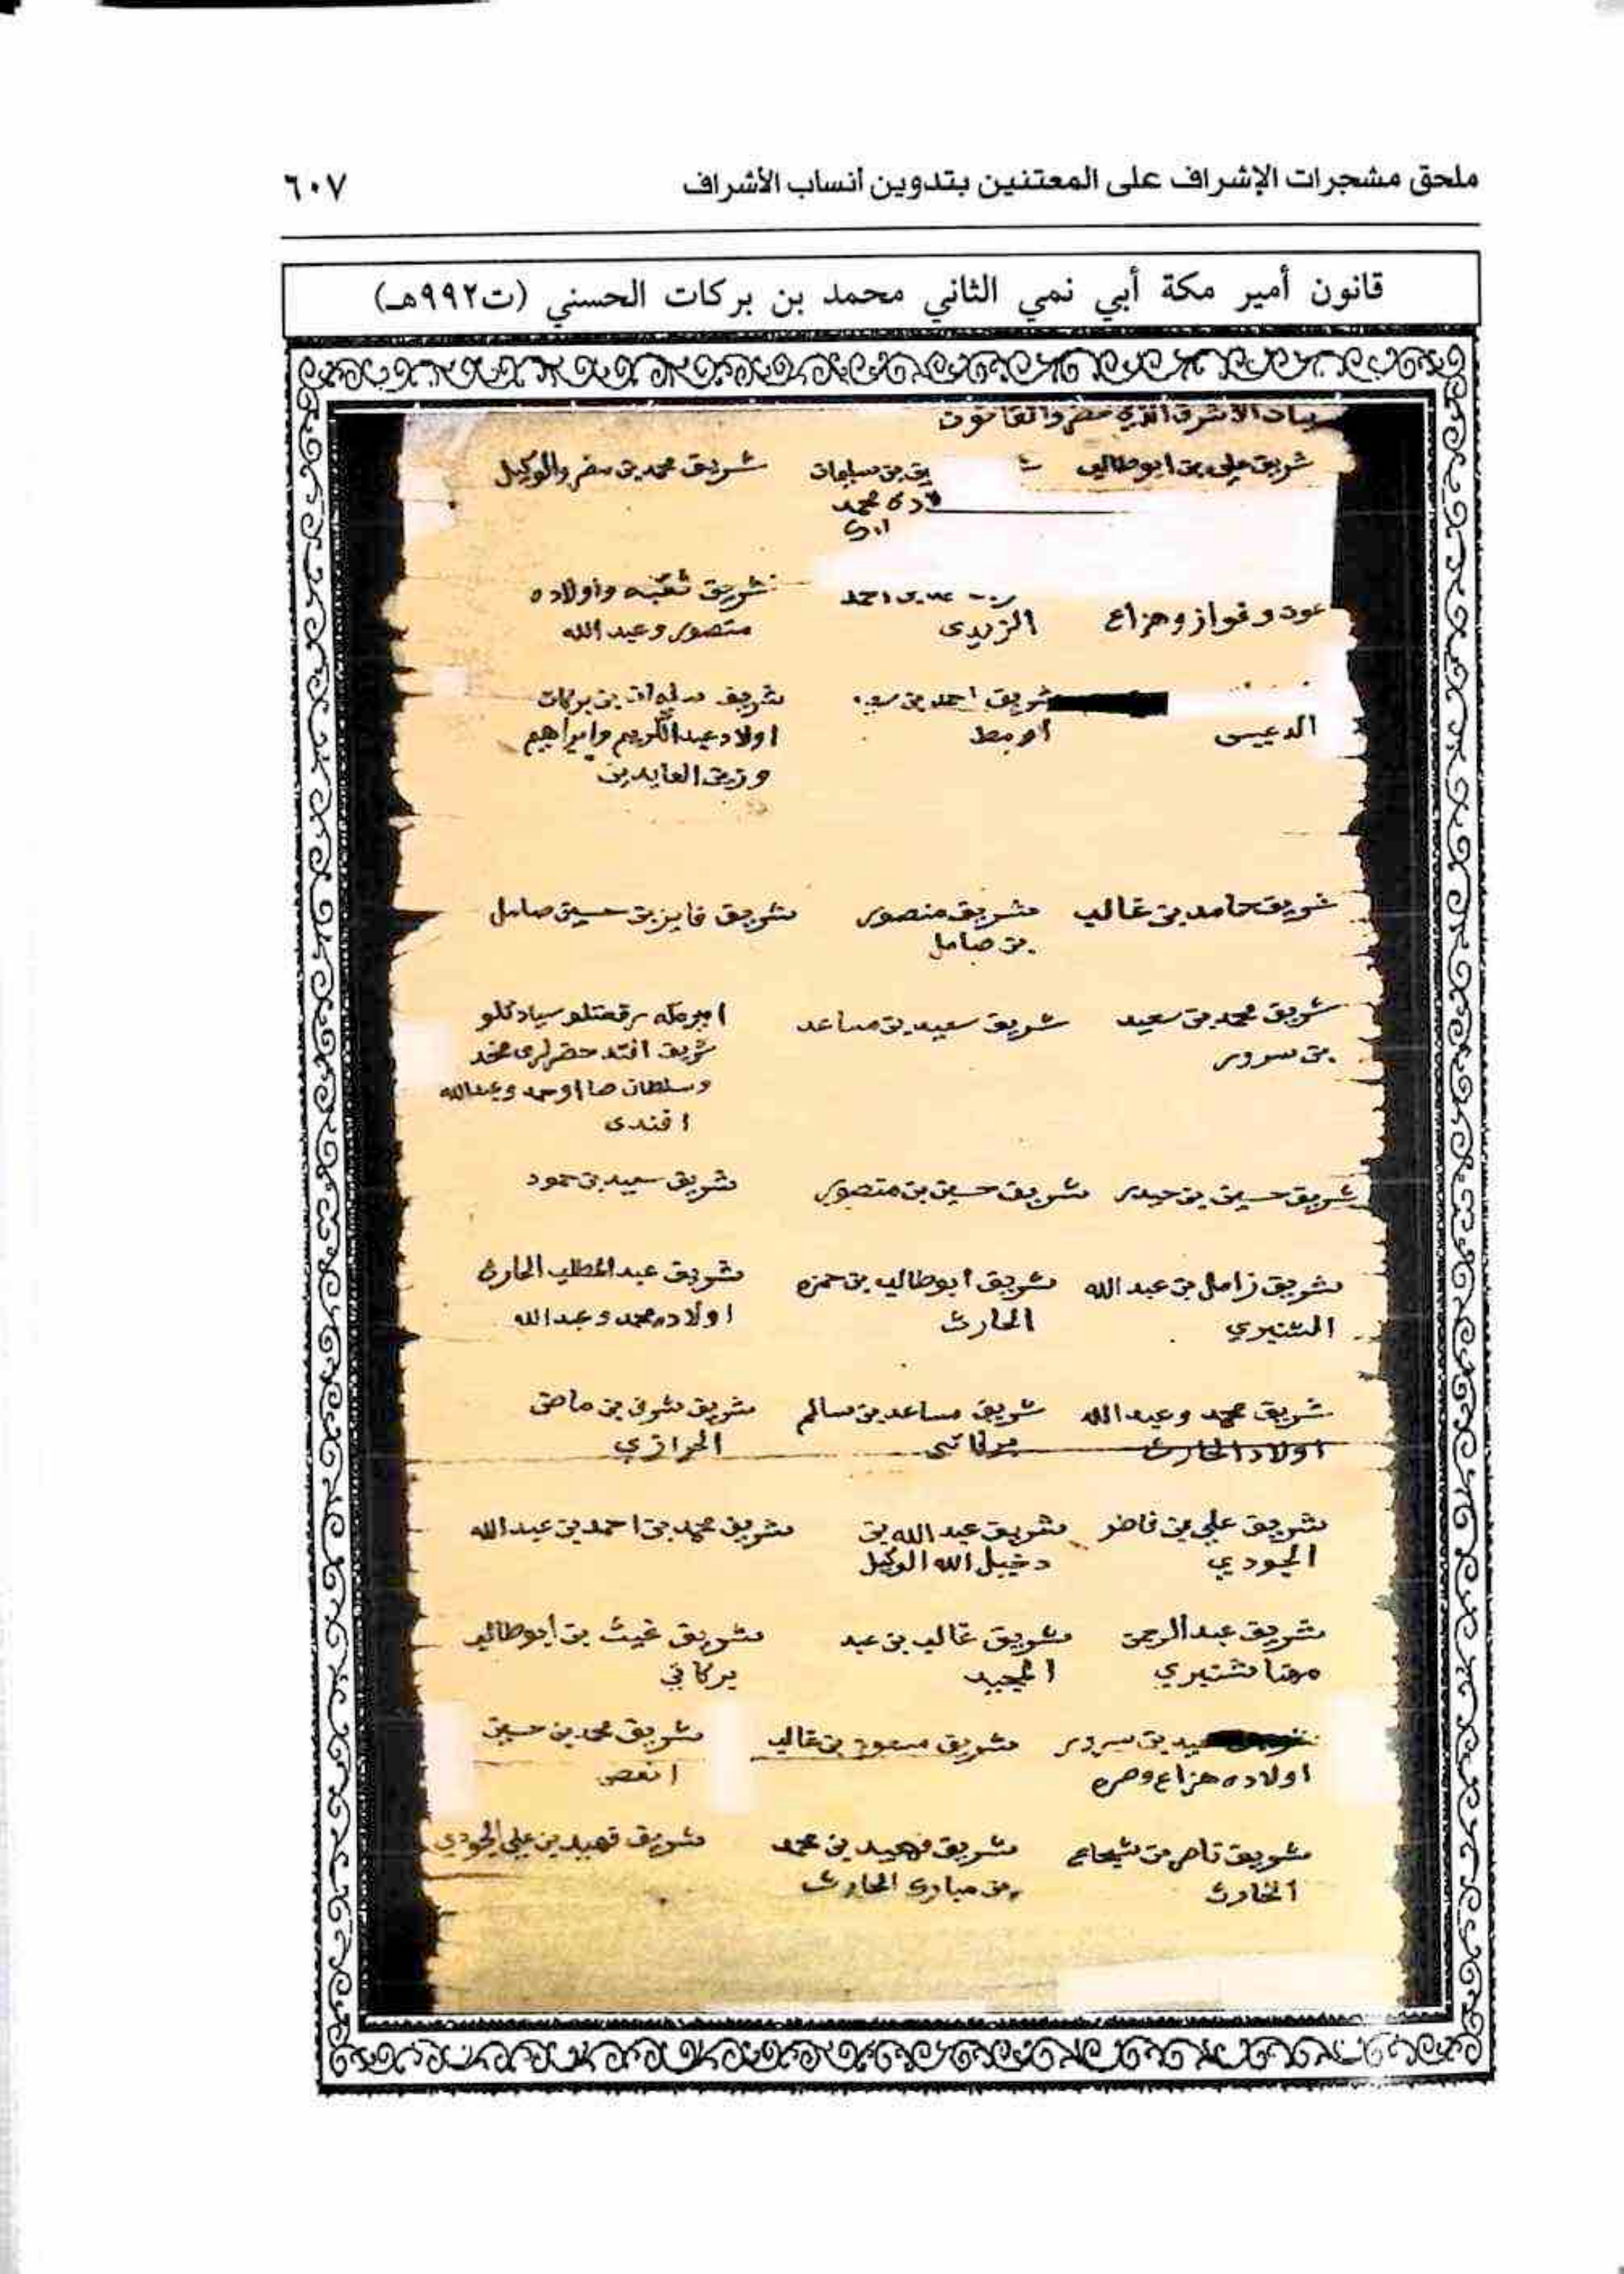 ملحق مشجرات الإشراف على المعتنين بتدوين أنساب الأشراف ٦٠٧
قانون أمير مكة أبي نمي الثاني محمد بن بركات الحسني (ت٩٩٢هـ)
بيان الاشراف الذي حضروا القانون
شريف علي بن ابو طالب
بن سليمان
محمد
شريف محمد بن والوكيل
عون وفواز وهزاع
احمد
الزيدي
شريف ثقبه واولاده
منصور وعبد الله
الدعيس
شريف احمد بن
شريف بن بركات
اولاد عبد الكريم وابراهيم
وزين العابدين
شريف حامد بن غالب
شريف منصور
بن صامل
شريف فايز بن حسين صامل
شريف محمد بن سعيد
بن سرور
شريف سعيد بن مساعد
امير مكه سيادتلو
شريف
وسلطان وعبد الله
افندي
شريف حسين بن حيدر
شريف حسين بن منصور
شريف سعيد بن حمود
شريف زامل بن عبد الله
الشنبري
شريف ابو طالب بن حمزه
الحارث
شريف عبد المطلب الحارث
اولاده محمد وعبد الله
شريف محمد وعبد الله
اولاد الحارث
شريف مساعد بن سالم
بركاتي
شريف شرف بن ماضي
الحرازي
شريف علي بن
الجودي
شريف عبد الله بن
دخيل الله الوكيل
شريف محمد بن احمد بن عبد الله
شريف عبد الرحمن
مهنا شنبري
شريف غالب بن عبد
المجيد
شريف غيث بن ابو طالب
بركاتي
بن سرور
اولاده هزاع
شريف مسعود بن غالب
شريف محمد بن حسين
شريف ناصر بن شجاع
الحارث
شريف فهيد بن محمد
بن مبارك الحارث
شريف فهيد بن علي الجودي